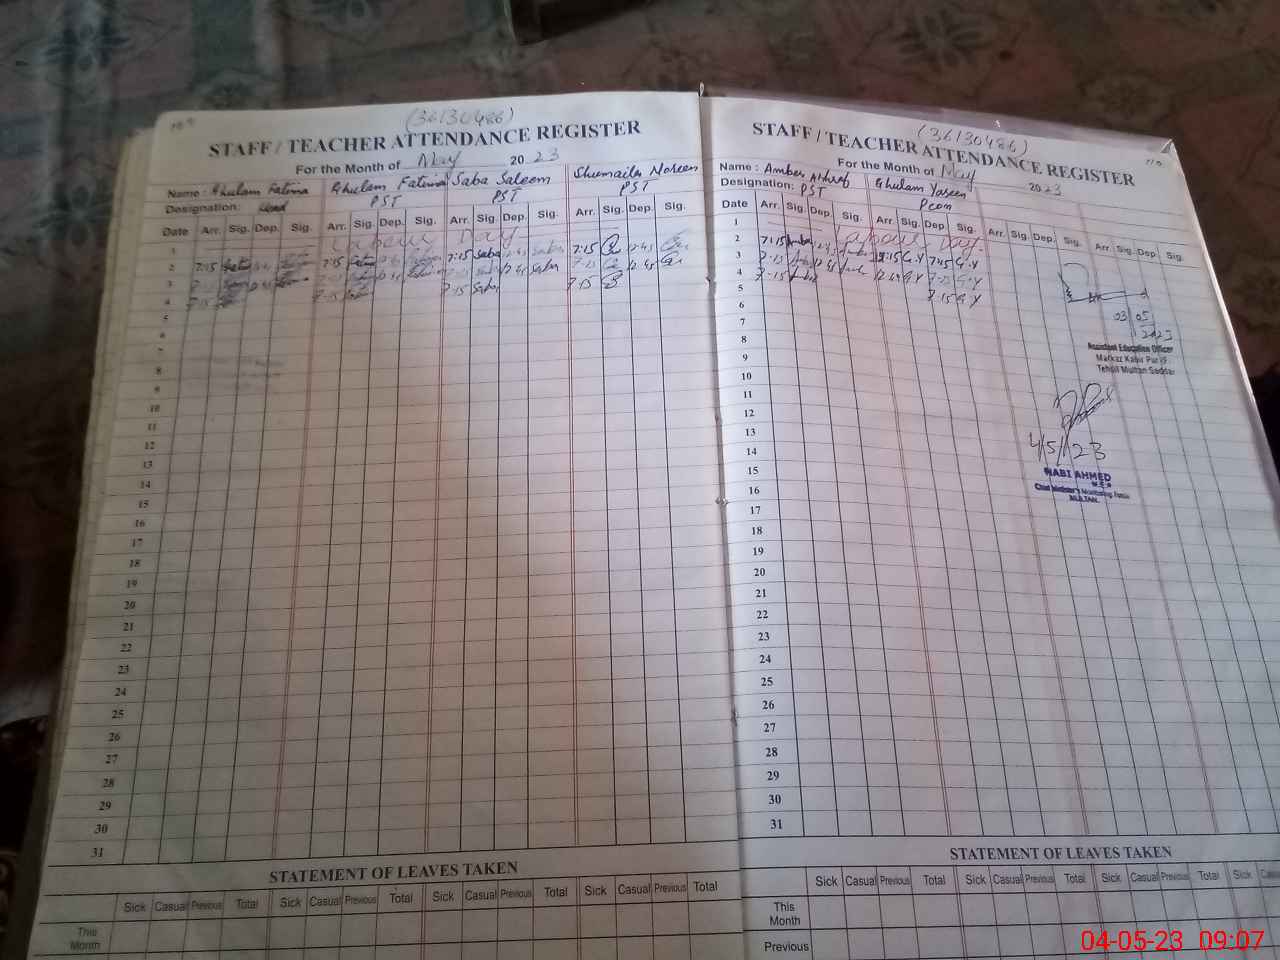 (36130486)
STAFF / TEACHER ATTENDANCE REGISTER
For the Month of May 2023
Name: Ghulam Fatima Ghulam Fatima Saba Saleem Shumaila Noreen
Designation: Head PST PST PST
Date Arr. Sig. Dep. Sig. Arr. Sig. Dep. Sig. Arr. Sig. Dep. Sig. Arr. Sig. Dep. Sig.
1 Labour Day
2 7:15 7:15 7:15 Saba 12:45 Saba 7:15 12:45
3 7:15 12:45 Saba 7:15 12:45
4 7:15 7:15 7:15 Saba 7:15
5
6
7
8
9
10
11
12
13
14
15
16
17
18
19
20
21
22
23
24
25
26
27
28
29
30
31
STATEMENT OF LEAVES TAKEN
Sick Casual Previous Total Sick Casual Previous Total Sick Casual Previous Total Sick Casual Previous Total
This Month
(36130486)
STAFF / TEACHER ATTENDANCE REGISTER
For the Month of May 2023
Name: Amber Ashraf Ghulam Yaseen
Designation: PST Peon
Date Arr. Sig. Dep. Sig. Arr. Sig. Dep. Sig. Arr. Sig. Dep. Sig. Arr. Sig. Dep. Sig.
1 Labour Day
2 7:15 G.Y
3 7:15 12:45 G.Y
4 7:15 7:15 G.Y
5
6
7
8
9
10
11
12
13
14
15
16
17
18
19
20
21
22
23
24
25
26
27
28
29
30
31
03/05/2023
Assistant Education Officer
Markaz Kabir Pur
Tehsil Multan Saddar
4/5/23
NABI AHMED
M.E.A
Chief Minister's Monitoring Force
MULTAN.
STATEMENT OF LEAVES TAKEN
Sick Casual Previous Total Sick Casual Previous Total Sick Casual Previous Total Sick
This Month
Previous
04-05-23 09:07